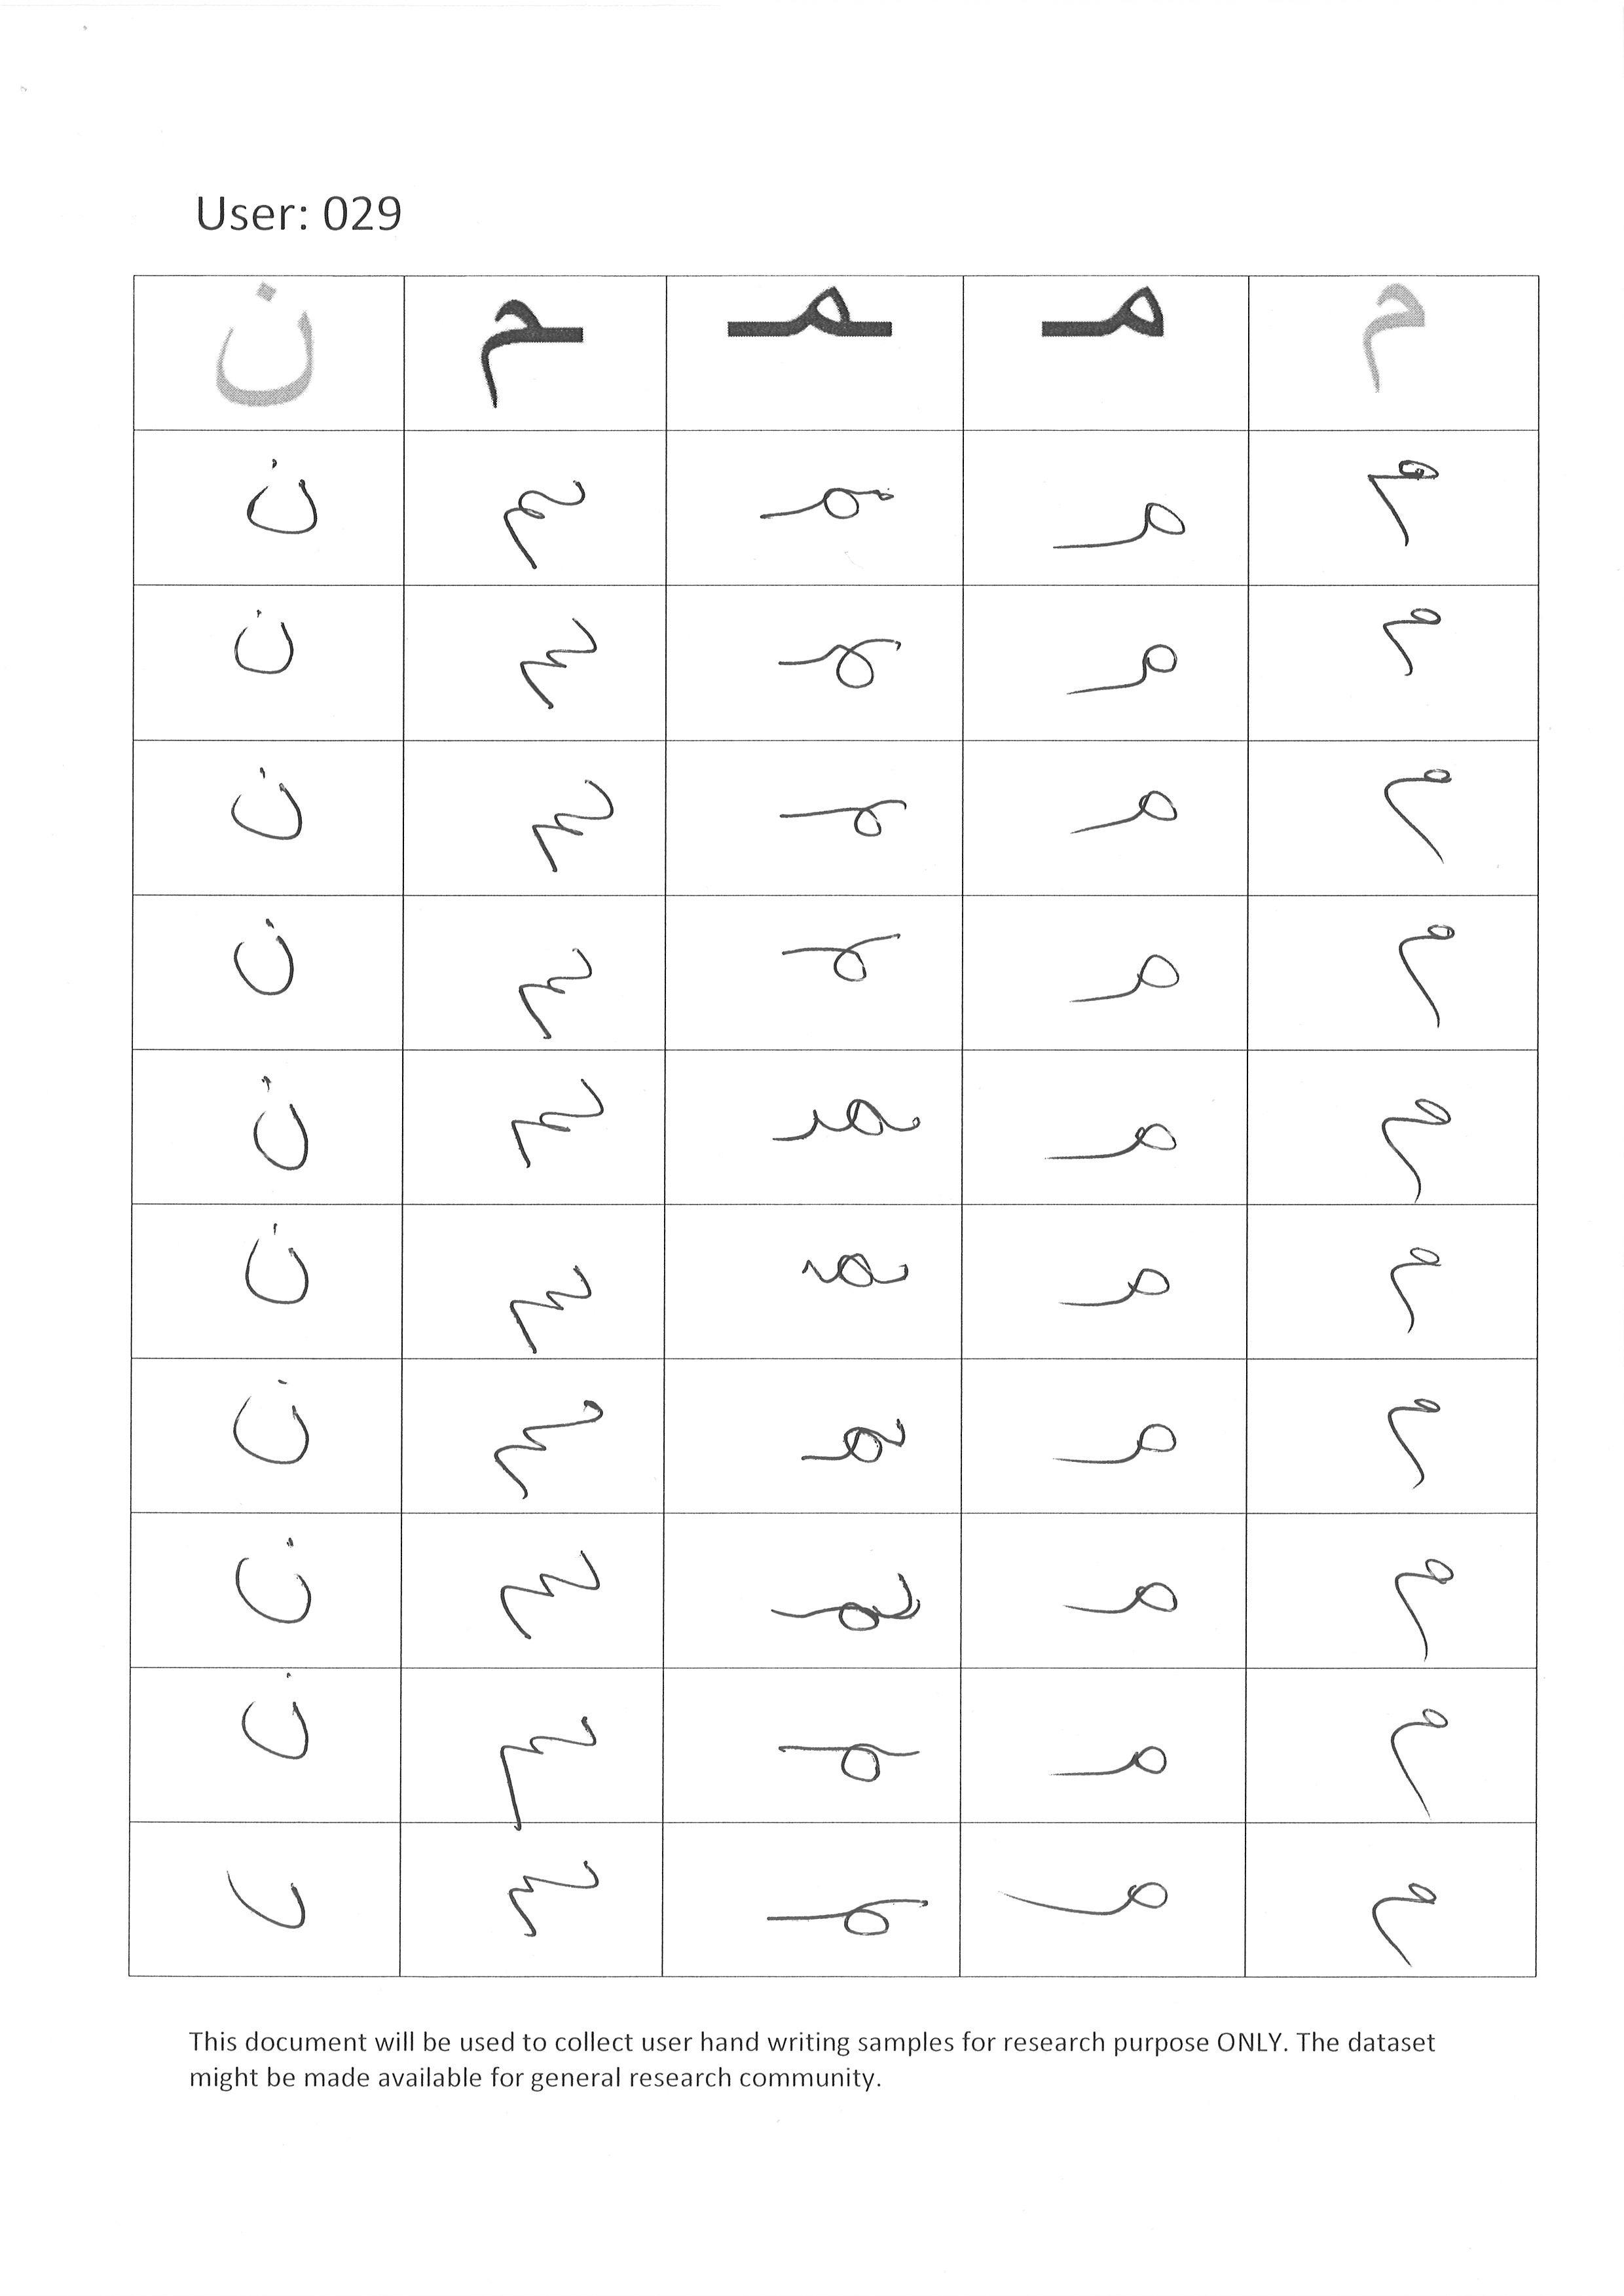 User: 029
م مـ ـمـ ـم ن
م مـ ـمـ ـم ن
م مـ ـمـ ـم ن
م مـ ـمـ ـم ن
م مـ ـمـ ـم ن
م مـ ـمـ ـم ن
م مـ ـمـ ـم ن
م مـ ـمـ ـم ن
م مـ ـمـ ـم ن
م مـ ـمـ ـم ن
م مـ ـمـ ـم ں
This document will be used to collect user hand writing samples for research purpose ONLY. The dataset
might be made available for general research community.